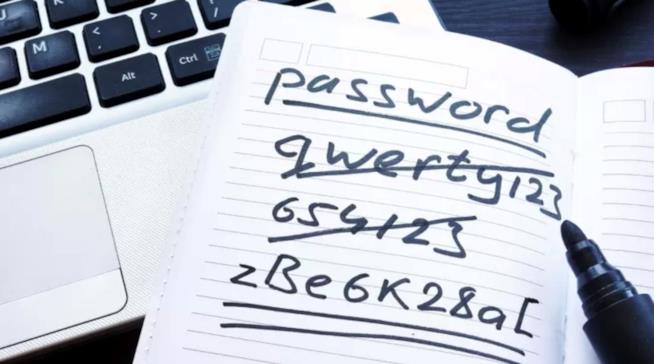 M
<
,
>
.
?
/
Alt
Ctrl
password
qwerty123
654123
zBe6K28a[